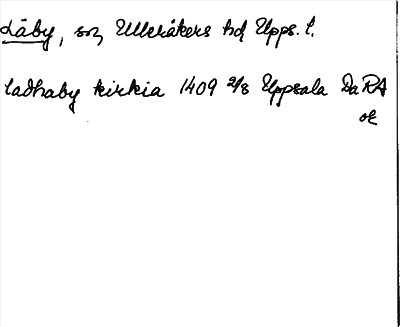 Läby, sn, Ulleråkers hd Upps. l.
ladhaby kirkia 1409 2/8 Uppsala Da RA
ok